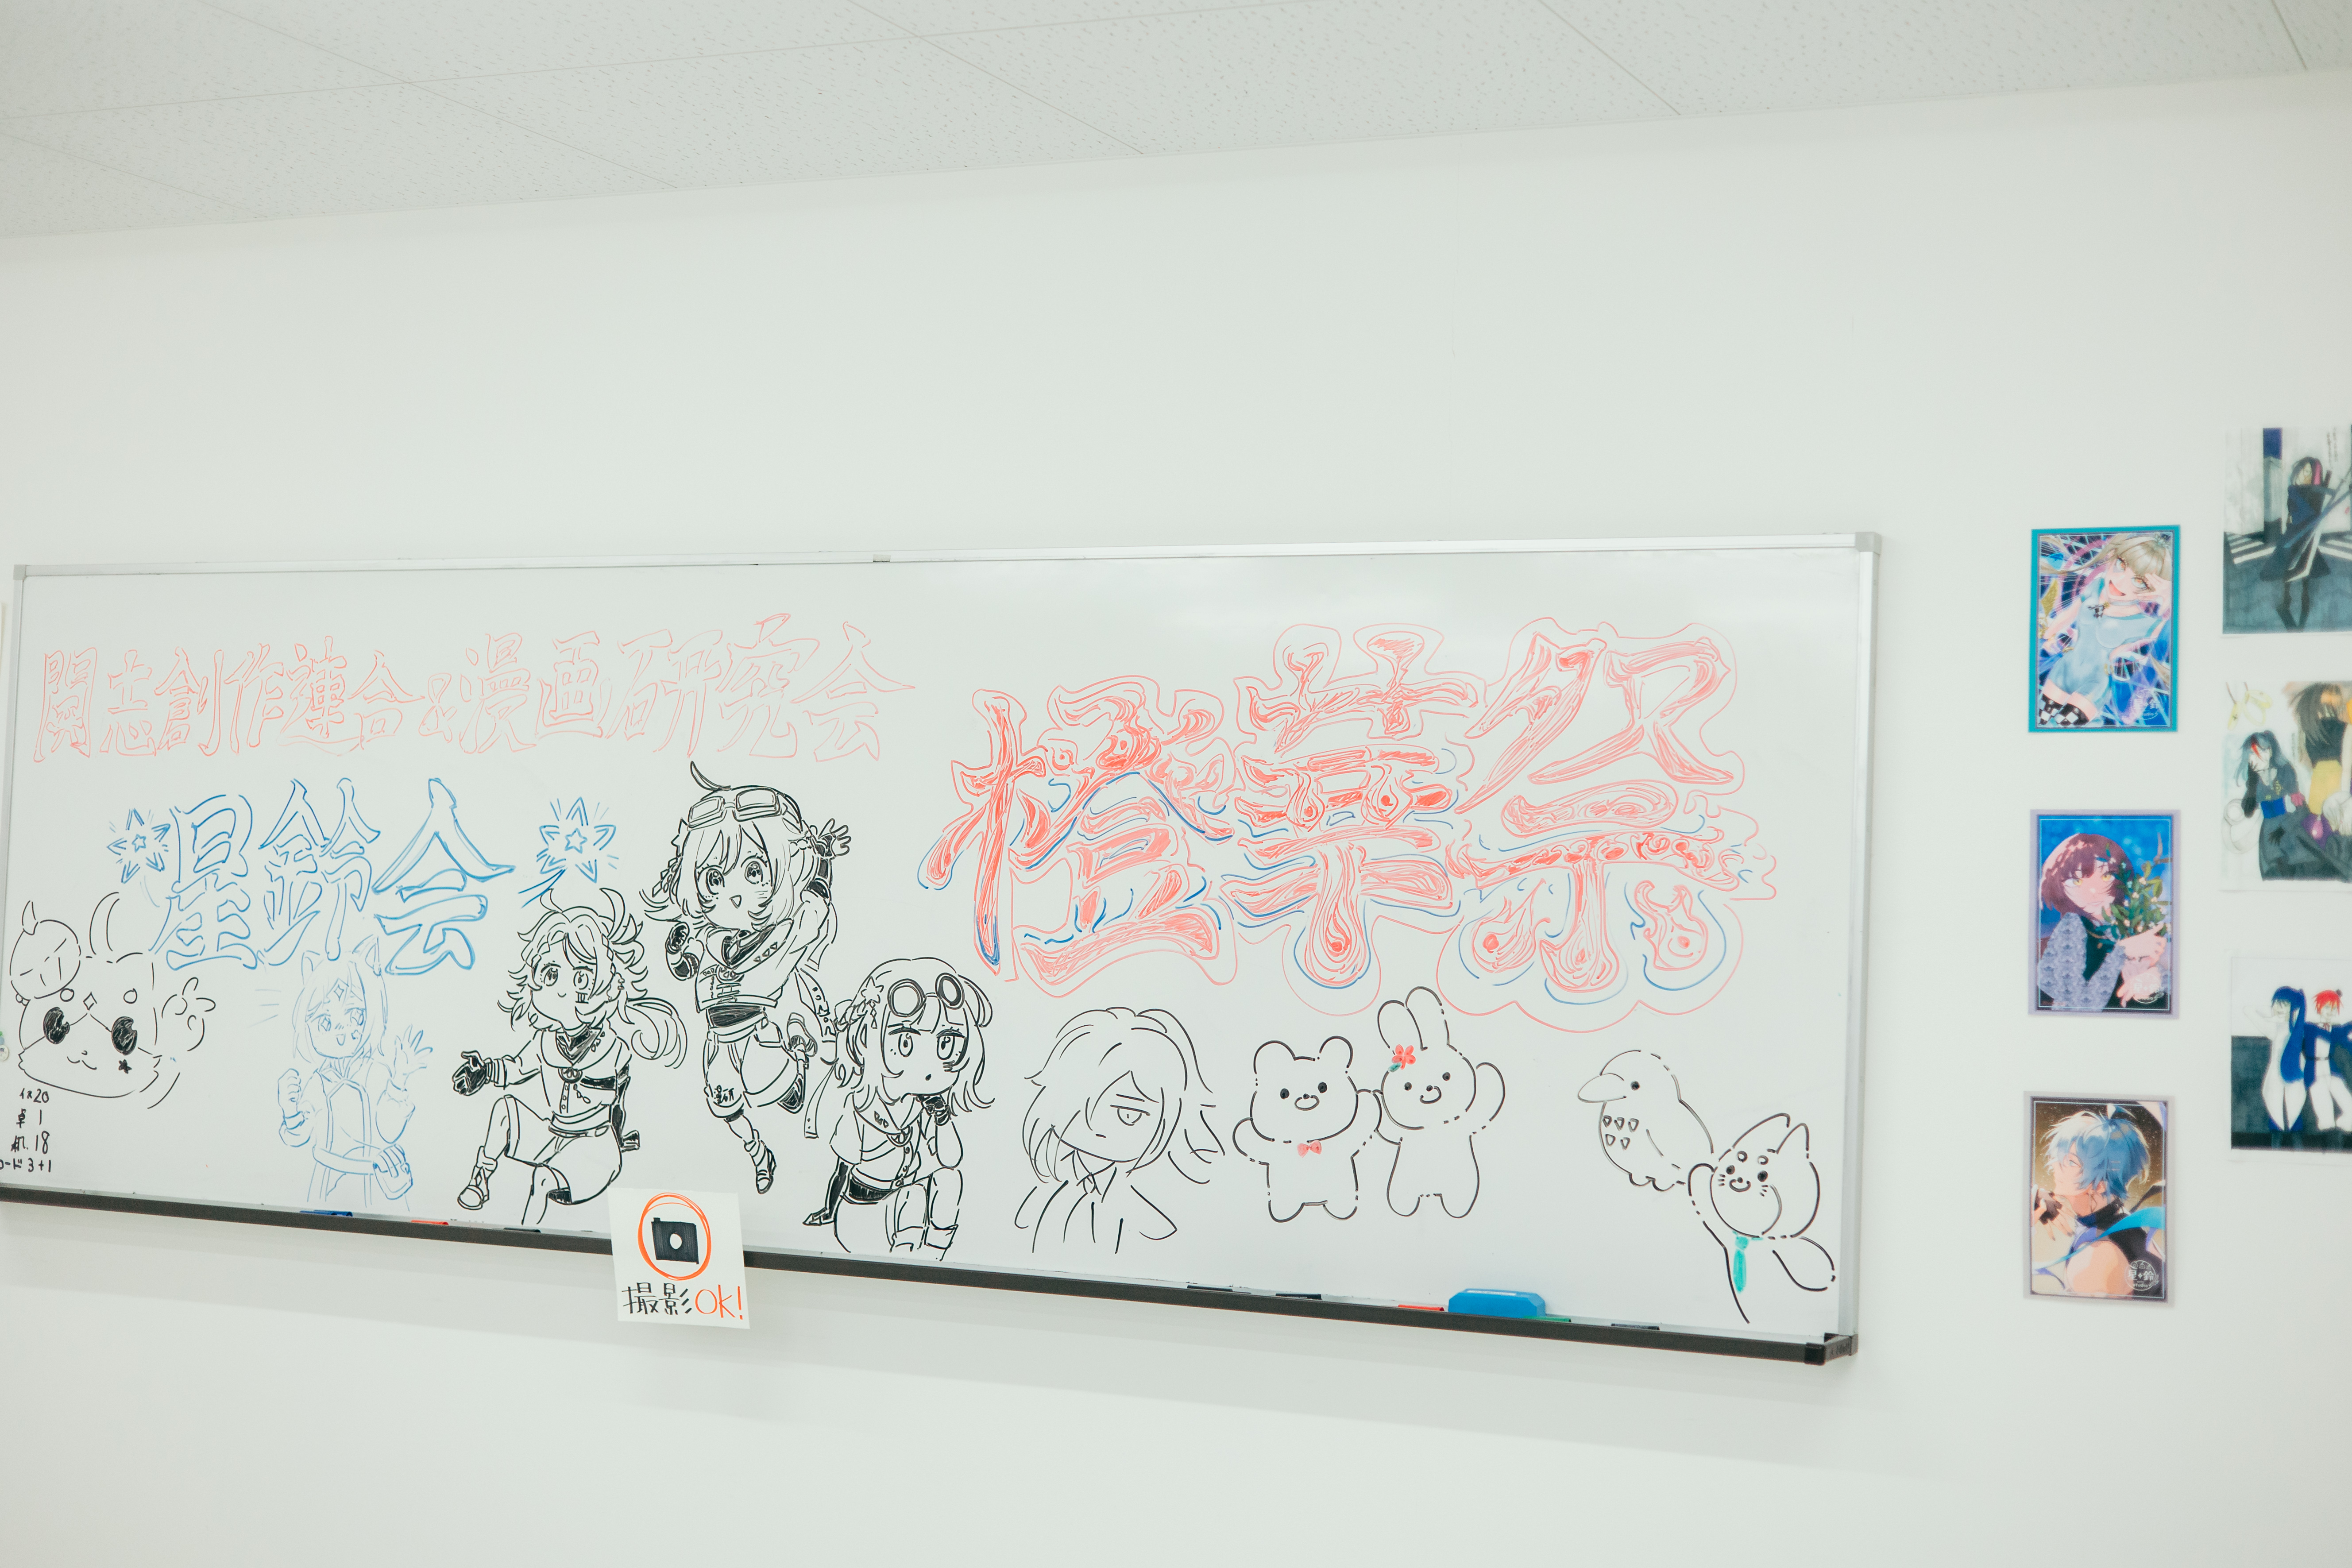 開志創作連合&漫画研究会
橙華祭
星鈴会
イス20
卓 1
机 18
コード 3+1
撮影OK!